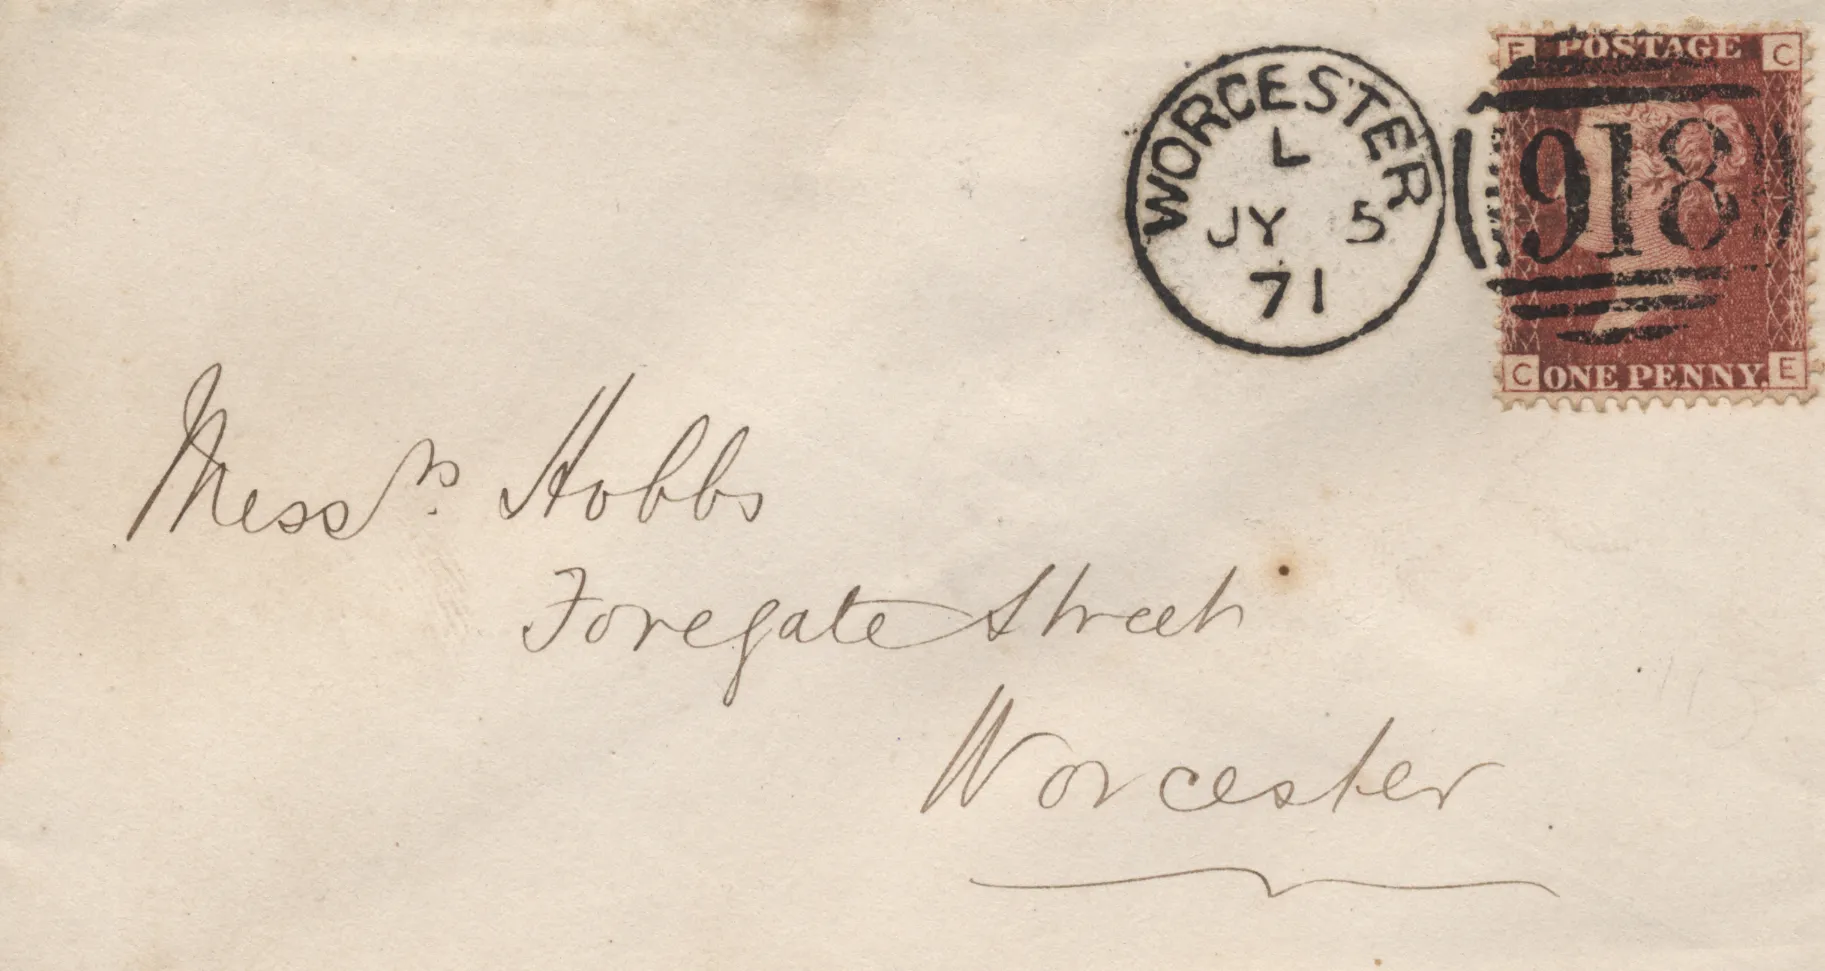 WORCESTER
L
JY 5
71
E POSTAGE C
918
C ONE PENNY. E
Messrs. Hobbs
Foregate Street
Worcester